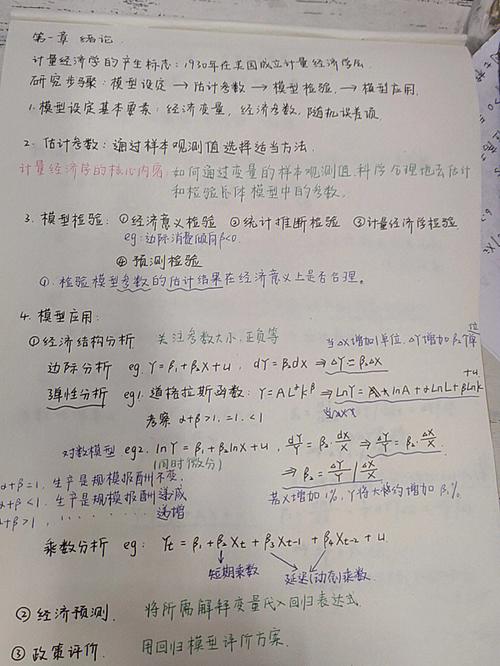 第一章 绪论.
计量经济学的产生标志：1930年在美国成立计量经济学会.
研究步骤：模型设定 → 估计参数 → 模型检验. → 模型应用.
1. 模型设定基本要素：经济变量，经济参数，随机误差项.
2. 估计参数：通过样本观测值选择适当方法.
计量经济学的核心内容：如何通过变量的样本观测值，科学合理地去估计
和检验总体模型中的参数。
3. 模型检验：①经济意义检验 ②统计推断检验 ③计量经济学检验
eg: 边际消费倾向β<0.
④ 预测检验
①. 检验模型参数的估计结果在经济意义上是否合理。
4. 模型应用：
①经济结构分析 关注参数大小，正负等
当△X增加1单位，△Y增加β₂单位
边际分析 eg. Y=β₁+β₂X+u, dY=β₂dX ⇒ △Y=β₂△X
弹性分析 eg1. 道格拉斯函数：Y=ALᵅKᵝ ⇒ LnY= lnA+αLnL+βLnK+u
考察 α+β>1. =1. <1
对数模型 eg2. lnY=β₁+β₂lnX+u, dY/Y=β₂·dX/X ⇒ △Y/Y=β₂·△X/X.
(同时微分)
⇒ β₂=△Y/Y / △X/X
α+β=1, 生产是规模报酬不变.
α+β<1, 生产是规模报酬递减
α+β>1, 〃 递增
若X增加1%, Y将大约增加β₂%.
乘数分析 eg: Yt=β₁+β₂Xt+β₃Xt-1+β₄Xt-2+u.
短期乘数 延迟(动态)乘数.
② 经济预测. 将所属解释变量代入回归表达式.
③ 政策评价. 用回归模型评价方案.